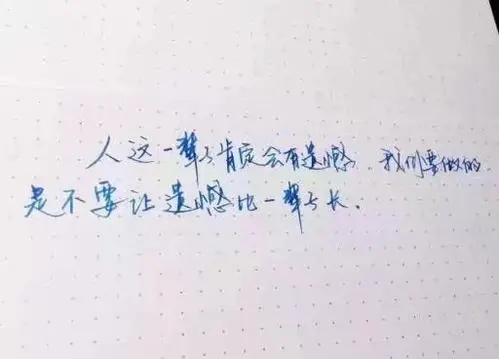 人这一辈子肯定会有遗憾，我们要做的
是不要让遗憾比一辈子长.